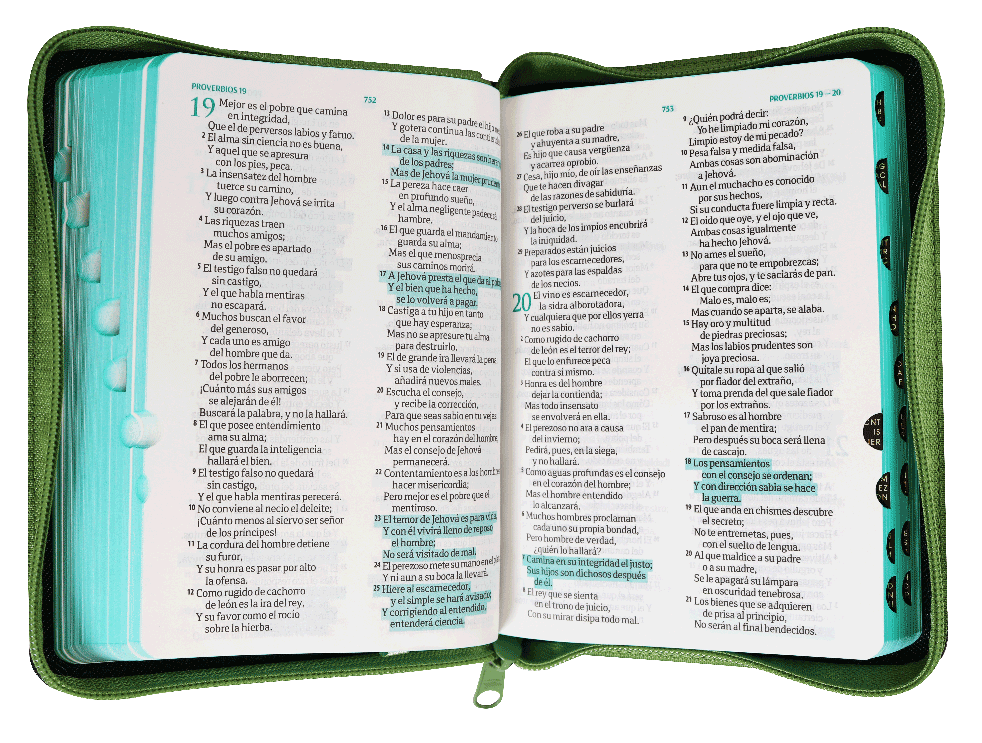 PROVERBIOS 19
752
19 Mejor es el pobre que camina
en integridad,
Que el de perversos labios y fatuo.
2 El alma sin ciencia no es buena,
Y aquel que se apresura
con los pies, peca.
3 La insensatez del hombre
tuerce su camino,
Y luego contra Jehová se irrita
su corazón.
4 Las riquezas traen
muchos amigos;
Mas el pobre es apartado
de su amigo.
5 El testigo falso no quedará
sin castigo,
Y el que habla mentiras
no escapará.
6 Muchos buscan el favor
del generoso,
Y cada uno es amigo
del hombre que da.
7 Todos los hermanos
del pobre le aborrecen;
¡Cuánto más sus amigos
se alejarán de él!
Buscará la palabra, y no la hallará.
8 El que posee entendimiento
ama su alma;
El que guarda la inteligencia
hallará el bien.
9 El testigo falso no quedará
sin castigo,
Y el que habla mentiras perecerá.
10 No conviene al necio el deleite;
¡Cuánto menos al siervo ser señor
de los príncipes!
11 La cordura del hombre detiene
su furor,
Y su honra es pasar por alto
la ofensa.
12 Como rugido de cachorro
de león es la ira del rey,
Y su favor como el rocío
sobre la hierba.
13 Dolor es para su padre el hijo
Y gotera continua las
de la mujer.
14 La casa y las riquezas son
de los padres;
Mas de Jehová la mujer
15 La pereza hace caer
en profundo sueño,
Y el alma negligente padecerá
hambre.
16 El que guarda el mandamiento
guarda su alma;
Mas el que menosprecia
sus caminos morirá.
17 A Jehová presta el que da al
Y el bien que ha hecho,
se lo volverá a pagar.
18 Castiga a tu hijo en tanto
que hay esperanza;
Mas no se apresure tu alma
para destruirlo.
19 El de grande ira llevará la pena
Y si usa de violencias,
añadirá nuevos males.
20 Escucha el consejo,
y recibe la corrección,
Para que seas sabio en tu vejez
21 Muchos pensamientos
hay en el corazón del hombre
Mas el consejo de Jehová
permanecerá.
22 Contentamiento es a los hombre
hacer misericordia;
Pero mejor es el pobre que el
mentiroso.
23 El temor de Jehová es para vida
Y con él vivirá lleno de reposo
el hombre;
No será visitado de mal.
24 El perezoso mete su mano en el
Y ni aun a su boca la llevará.
25 Hiere al escarnecedor,
y el simple se hará avisado;
Y corrigiendo al entendido,
entenderá ciencia.
753
PROVERBIOS 19 — 20
26 El que roba a su padre
y ahuyenta a su madre,
Es hijo que causa vergüenza
y acarrea oprobio.
27 Cesa, hijo mío, de oír las enseñanzas
Que te hacen divagar
de las razones de sabiduría.
28 El testigo perverso se burlará
del juicio,
Y la boca de los impíos encubrirá
la iniquidad.
29 Preparados están juicios
para los escarnecedores,
Y azotes para las espaldas
de los necios.
20 El vino es escarnecedor,
la sidra alborotadora,
Y cualquiera que por ellos yerra
no es sabio.
2 Como rugido de cachorro
de león es el terror del rey;
El que lo enfurece peca
contra sí mismo.
3 Honra es del hombre
dejar la contienda;
Mas todo insensato
se envolverá en ella.
4 El perezoso no ara a causa
del invierno;
Pedirá, pues, en la siega,
y no hallará.
5 Como aguas profundas es el consejo
en el corazón del hombre;
Mas el hombre entendido
lo alcanzará.
6 Muchos hombres proclaman
cada uno su propia bondad,
Pero hombre de verdad,
¿quién lo hallará?
7 Camina en su integridad el justo;
Sus hijos son dichosos después
de él.
8 El rey que se sienta
en el trono de juicio,
Con su mirar disipa todo mal.
9 ¿Quién podrá decir:
Yo he limpiado mi corazón,
Limpio estoy de mi pecado?
10 Pesa falsa y medida falsa,
Ambas cosas son abominación
a Jehová.
11 Aun el muchacho es conocido
por sus hechos,
Si su conducta fuere limpia y recta.
12 El oído que oye, y el ojo que ve,
Ambas cosas igualmente
ha hecho Jehová.
13 No ames el sueño,
para que no te empobrezcas;
Abre tus ojos, y te saciarás de pan.
14 El que compra dice:
Malo es, malo es;
Mas cuando se aparta, se alaba.
15 Hay oro y multitud
de piedras preciosas;
Mas los labios prudentes son
joya preciosa.
16 Quítale su ropa al que salió
por fiador del extraño,
Y toma prenda del que sale fiador
por los extraños.
17 Sabroso es al hombre
el pan de mentira;
Pero después su boca será llena
de cascajo.
18 Los pensamientos
con el consejo se ordenan;
Y con dirección sabia se hace
la guerra.
19 El que anda en chismes descubre
el secreto;
No te entremetas, pues,
con el suelto de lengua.
20 Al que maldice a su padre
o a su madre,
Se le apagará su lámpara
en oscuridad tenebrosa.
21 Los bienes que se adquieren
de prisa al principio,
No serán al final bendecidos.